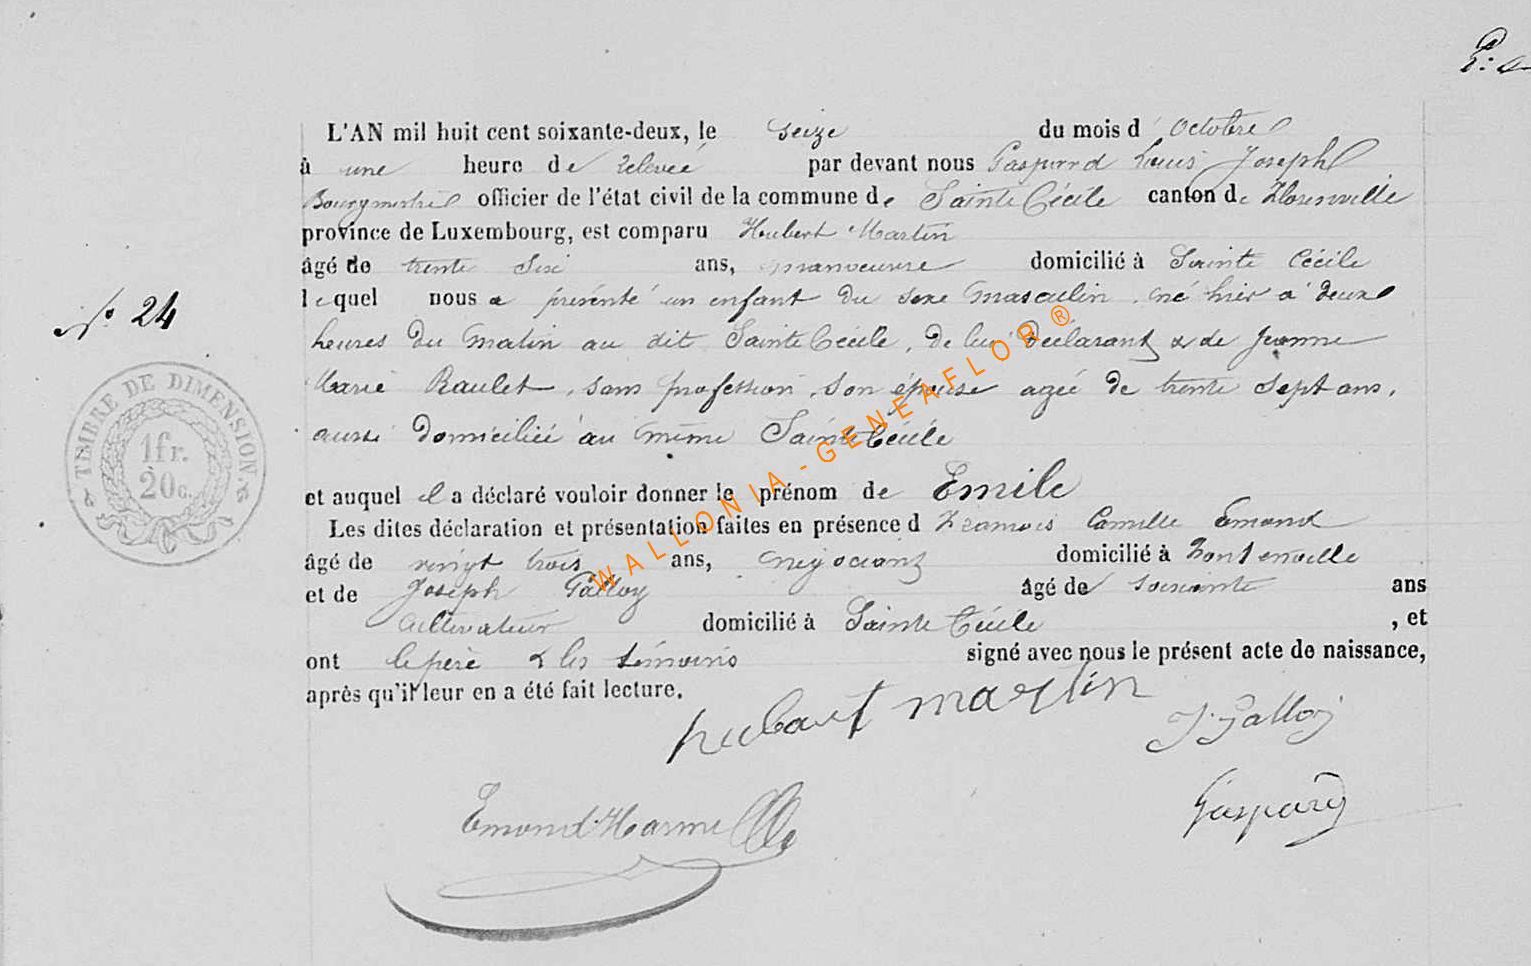 L'AN mil huit cent soixante-deux, le seize du mois d'Octobre
à une heure de relevée par devant nous Gaspard Louis Joseph
Bourgmestre officier de l'état civil de la commune de Sainte Cécile canton de Florenville
province de Luxembourg, est comparu Hubert Martin
âgé de trente six ans, manoeuvre domicilié à Sainte Cécile
lequel nous a présenté un enfant du sexe masculin, né hier à deux
heures du matin au dit Sainte Cécile, de lui déclarant & de Jeanne
Marie Raulet, sans profession, son épouse agée de trente sept ans,
aussi domiciliée au même Sainte Cécile
et auquel il a déclaré vouloir donner le prénom de Emile
Les dites déclaration et présentation faites en présence d François Camille Emond
âgé de vingt trois ans, négociant domicilié à
et de Joseph Galloy âgé de soixante ans
cultivateur domicilié à Sainte Cécile, et
ont le père & les témoins signé avec nous le présent acte de naissance,
après qu'il leur en a été fait lecture.
N° 24
TIMBRE DE DIMENSION
1fr.
20c.
hubert martin
J. Galloy
Emond
Gaspard
WALLONIA-GENEAFLOR®